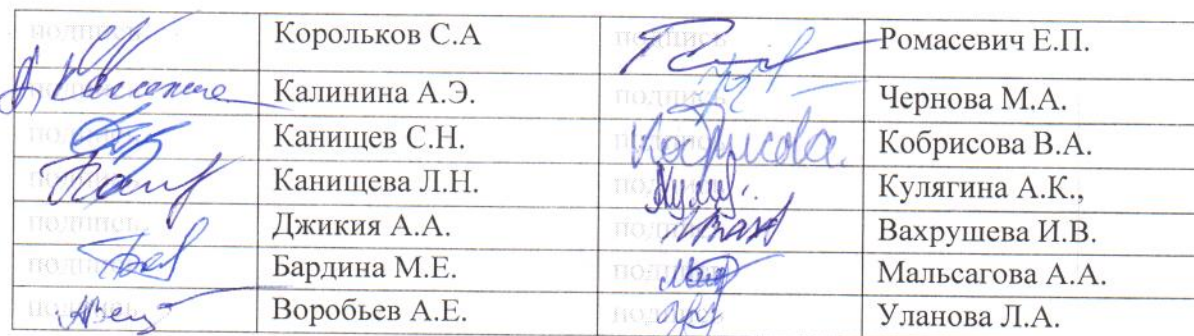 подпись Корольков С.А подпись Ромасевич Е.П.
подпись Калинина А.Э. подпись Чернова М.А.
подпись Канищев С.Н. подпись Кобрисова Кобрисова В.А.
подпись Канищева Л.Н. подпись Кулягина А.К.,
подпись Джикия А.А. подпись Вахрушева И.В.
подпись Бардина М.Е. подпись Мальсагова А.А.
подпись Воробьев А.Е. подпись Уланова Л.А.